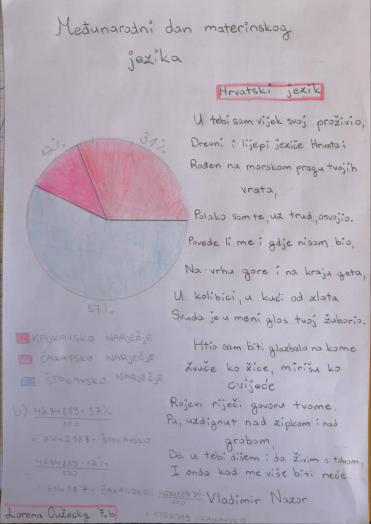 Međunarodni dan materinskog
jezika
Hrvatski jezik
U tebi sam vijek svoj proživio,
Drevni i lijepi jeziče Hrvata;
Rođen na morskom pragu tvojih
vrata,
Polako sam te, uz trud, osvojio.
Povede li me i gdje nisam bio,
Na vrhu gore i na kraju gata,
U kolibici, u kući od zlata
Svuda je u meni glas tvoj žuborio.
Htio sam biti glazbalo na kome
Zvuče ko žice, mirišu ko
cvijeće
Rojevi riječi govoru tvome.
Pa, uzdignut nad zipkom i nad
grobom,
Da u tebi dišem i da živim s tobom,
I onda kad me više biti neće.
Vladimir Nazor
12%
31%
57%
KAJKAVSKO NARJEČJE
ČAKAVSKO NARJEČJE
ŠTOKAVSKO NARJEČJE
b) 4284889 · 57%
100
ŠTOKAVSKO
4284889 · 12%
100
ČAKAVSKO
KAJKAVSKO
Lorena 7.b